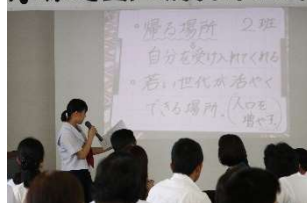 ・帰る場所 2班
自分を受け入れてくれる
・若い世代が活やく
できる場所、(人口を
増やす)